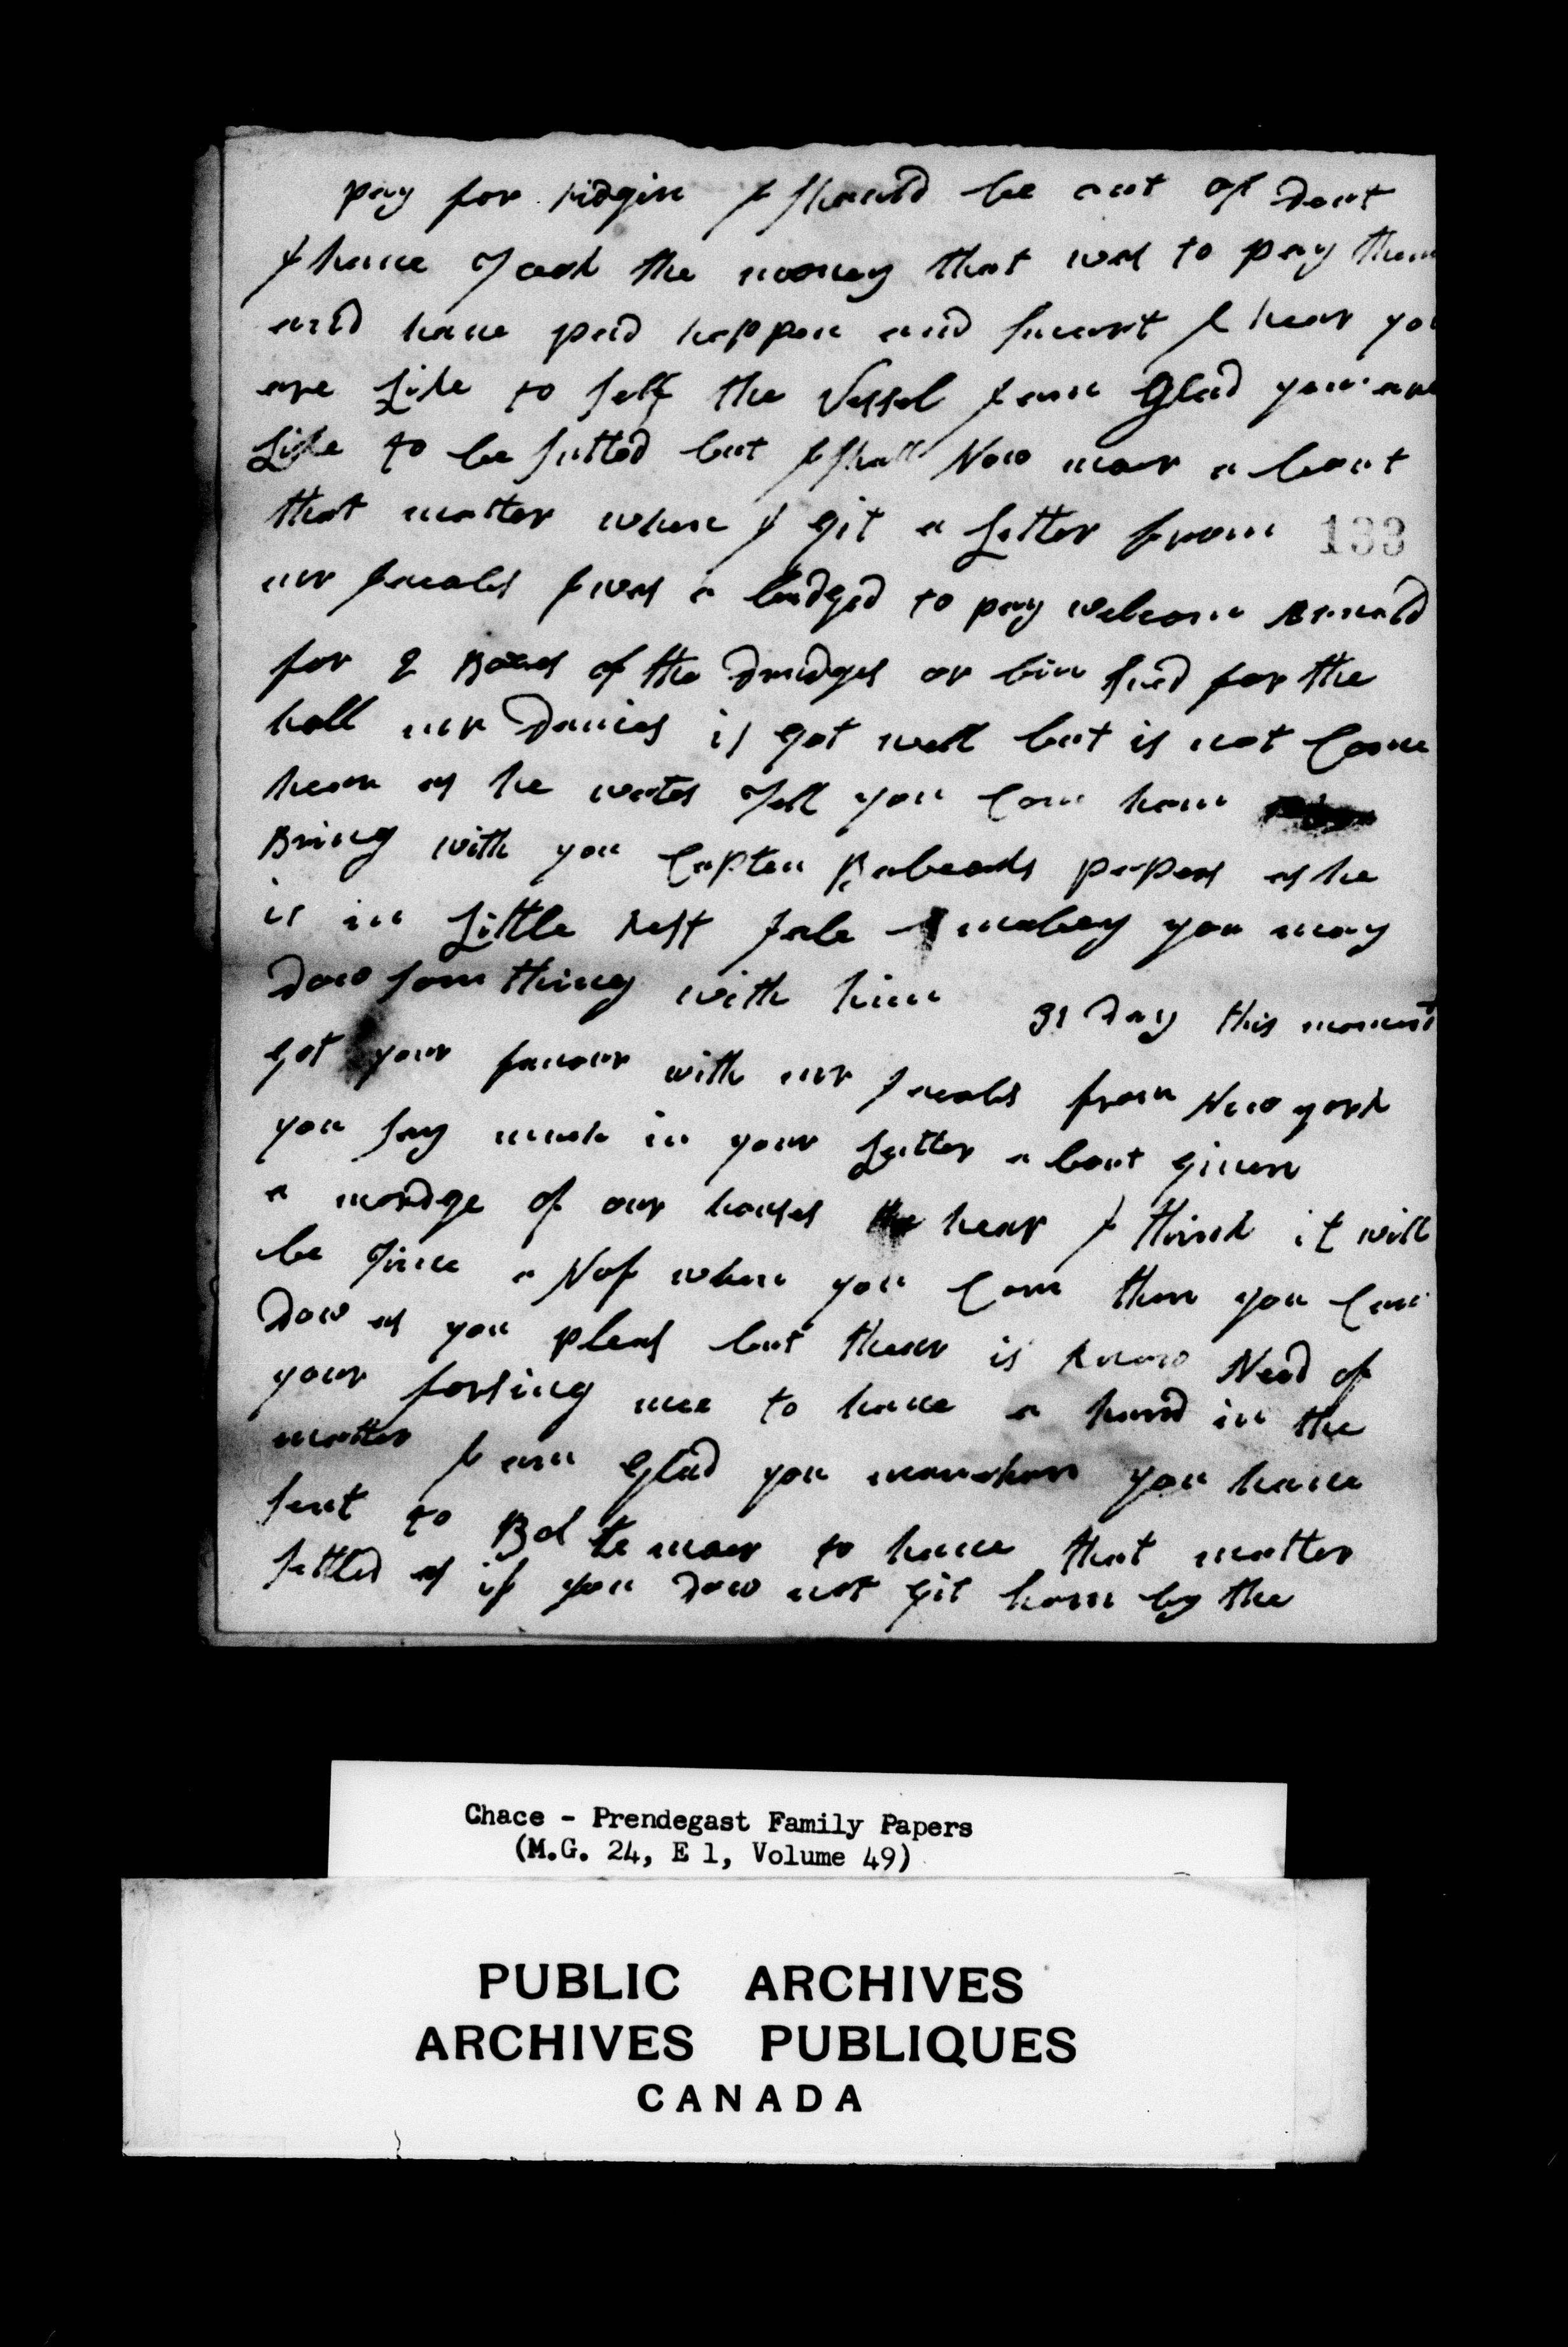 pay for Ridgin I Should be out of Dout
I have Tack the mooney that was to pay them
and have paid heppen and Sueart I hear you
are Like to Sell the Vessel I am Glad you are
Like to be Sutted but I Shall Now moor a bout
that matter when I git a Letter from
133
mr Jacobs I was a bledged to pay welcom Arnold
for 2 Boxes of the Drudges or bin Sued for the
holl mr Davies is got well but is not Come
heom as he wates Tell you Com hom
Bring with you Capten Babcocks papers as he
is in Little Rest Jale mabey you may
Dow Som thing with him 31 Day this moment
got your favour with mr Jacobs from New york
you Say much in your Letter a bout given
a mordge of our houses hear I think it will
be Time a Nof when you Com then you Can
Dow as you pleas but thear is know Need of
your forsing mee to have a hand in the
matter I am Glad you you have
Sent to Bolte moer to have that matter
Settled as if you Dow not git hom by the
Chace - Prendegast Family Papers
(M.G. 24, E 1, Volume 49)
PUBLIC ARCHIVES
ARCHIVES PUBLIQUES
CANADA